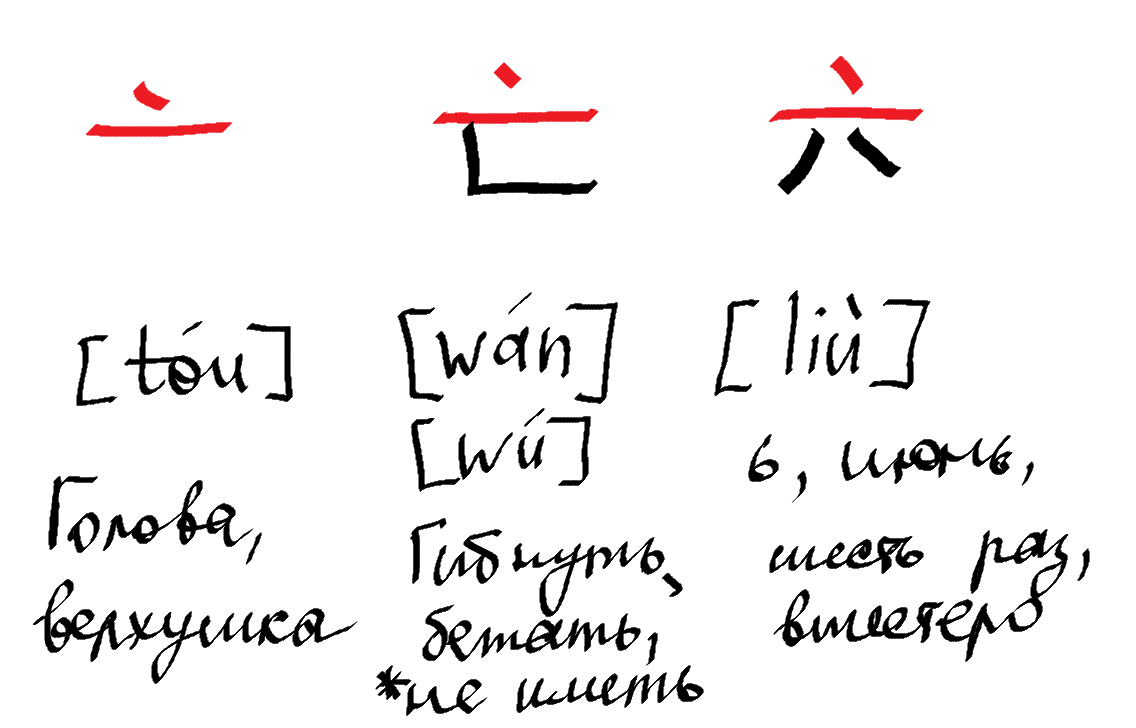 亠
[tóu]
Голова,
верхушка
亡
[wán]
[wú]
Гибнуть,
бежать,
*не иметь
六
[liù]
6, июнь,
шесть раз,
вшестеро